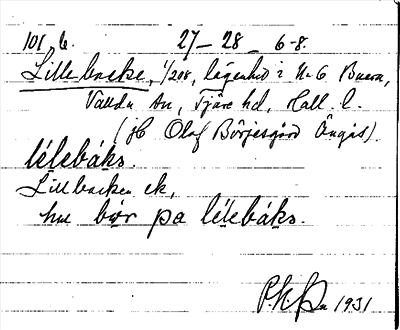 101 b. 27 – 28 6-8.
Lillebacke, 1/208, lägenhet i N:o 6 Buera,
Vallda sn, Fjäre hd, Hall. l.
(jfr Olof Börjesgård Ängås).
lélebáks.
Lillbacken ek,
hu bor pa lélebáks.
1931